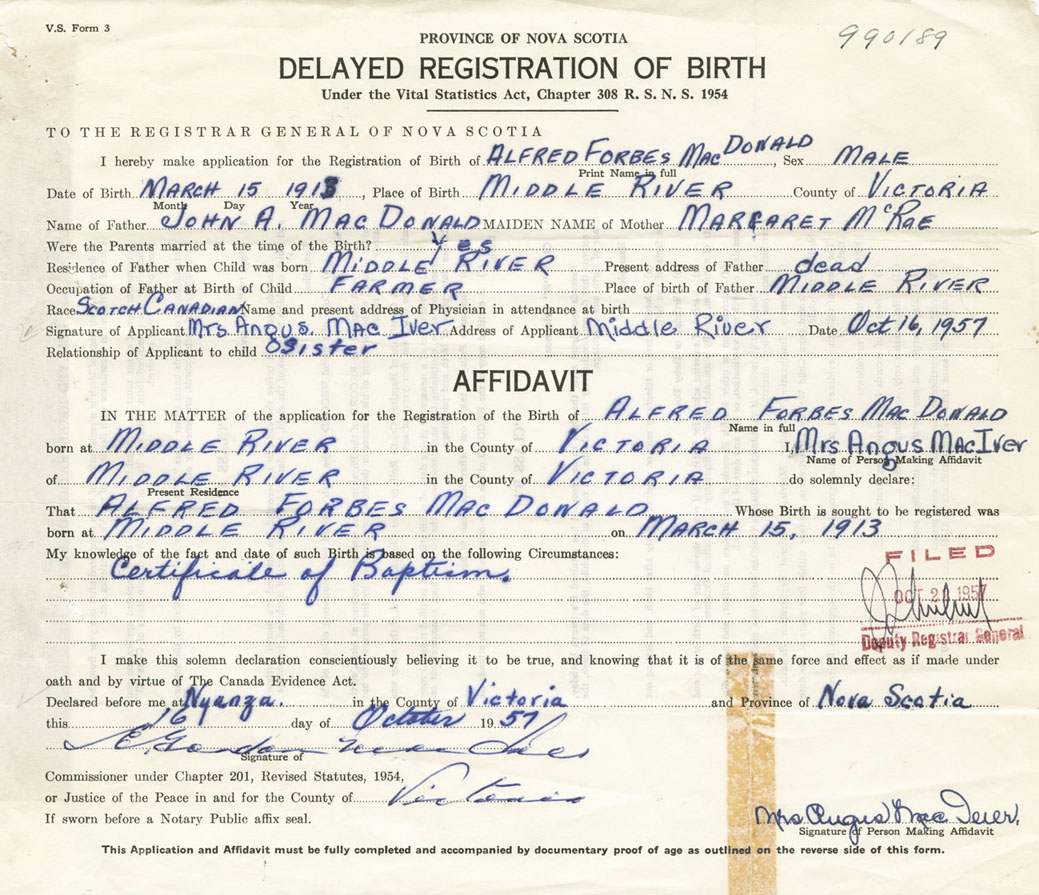 V.S. Form 3
990189
PROVINCE OF NOVA SCOTIA
DELAYED REGISTRATION OF BIRTH
Under the Vital Statistics Act, Chapter 308 R. S. N. S. 1954
TO THE REGISTRAR GENERAL OF NOVA SCOTIA
I hereby make application for the Registration of Birth of ALFRED FORBES MACDONALD, Sex MALE
Print Name in full
Date of Birth MARCH 15 1913, Place of Birth MIDDLE RIVER County of VICTORIA
Month Day Year
Name of Father JOHN A. MACDONALD MAIDEN NAME of Mother MARGARET McRAE
Were the Parents married at the time of the Birth? Yes
Residence of Father when Child was born MIDDLE RIVER Present address of Father dead
Occupation of Father at Birth of Child FARMER Place of birth of Father MIDDLE RIVER
Race SCOTCH CANADIAN Name and present address of Physician in attendance at birth
Signature of Applicant Mrs. Angus. MacIver Address of Applicant Middle River Date Oct 16, 1957
Relationship of Applicant to child Sister
AFFIDAVIT
IN THE MATTER of the application for the Registration of the Birth of ALFRED FORBES MACDONALD
Name in full
born at MIDDLE RIVER in the County of VICTORIA I, Mrs Angus MacIver
Name of Person Making Affidavit
of MIDDLE RIVER in the County of VICTORIA do solemnly declare:
Present Residence
That ALFRED FORBES MACDONALD Whose Birth is sought to be registered was
born at MIDDLE RIVER on MARCH 15, 1913
My knowledge of the fact and date of such Birth is based on the following Circumstances:
Certificate of Baptism.
FILED
OCT 2 1957
Deputy Registrar General
I make this solemn declaration conscientiously believing it to be true, and knowing that it is of the same force and effect as if made under
oath and by virtue of The Canada Evidence Act.
Declared before me at Nyanza. in the County of Victoria and Province of Nova Scotia
this 16 day of October 1957
Signature of
Commissioner under Chapter 201, Revised Statutes, 1954,
or Justice of the Peace in and for the County of Victoria
If sworn before a Notary Public affix seal.
Mrs Angus MacIver.
Signature of Person Making Affidavit
This Application and Affidavit must be fully completed and accompanied by documentary proof of age as outlined on the reverse side of this form.